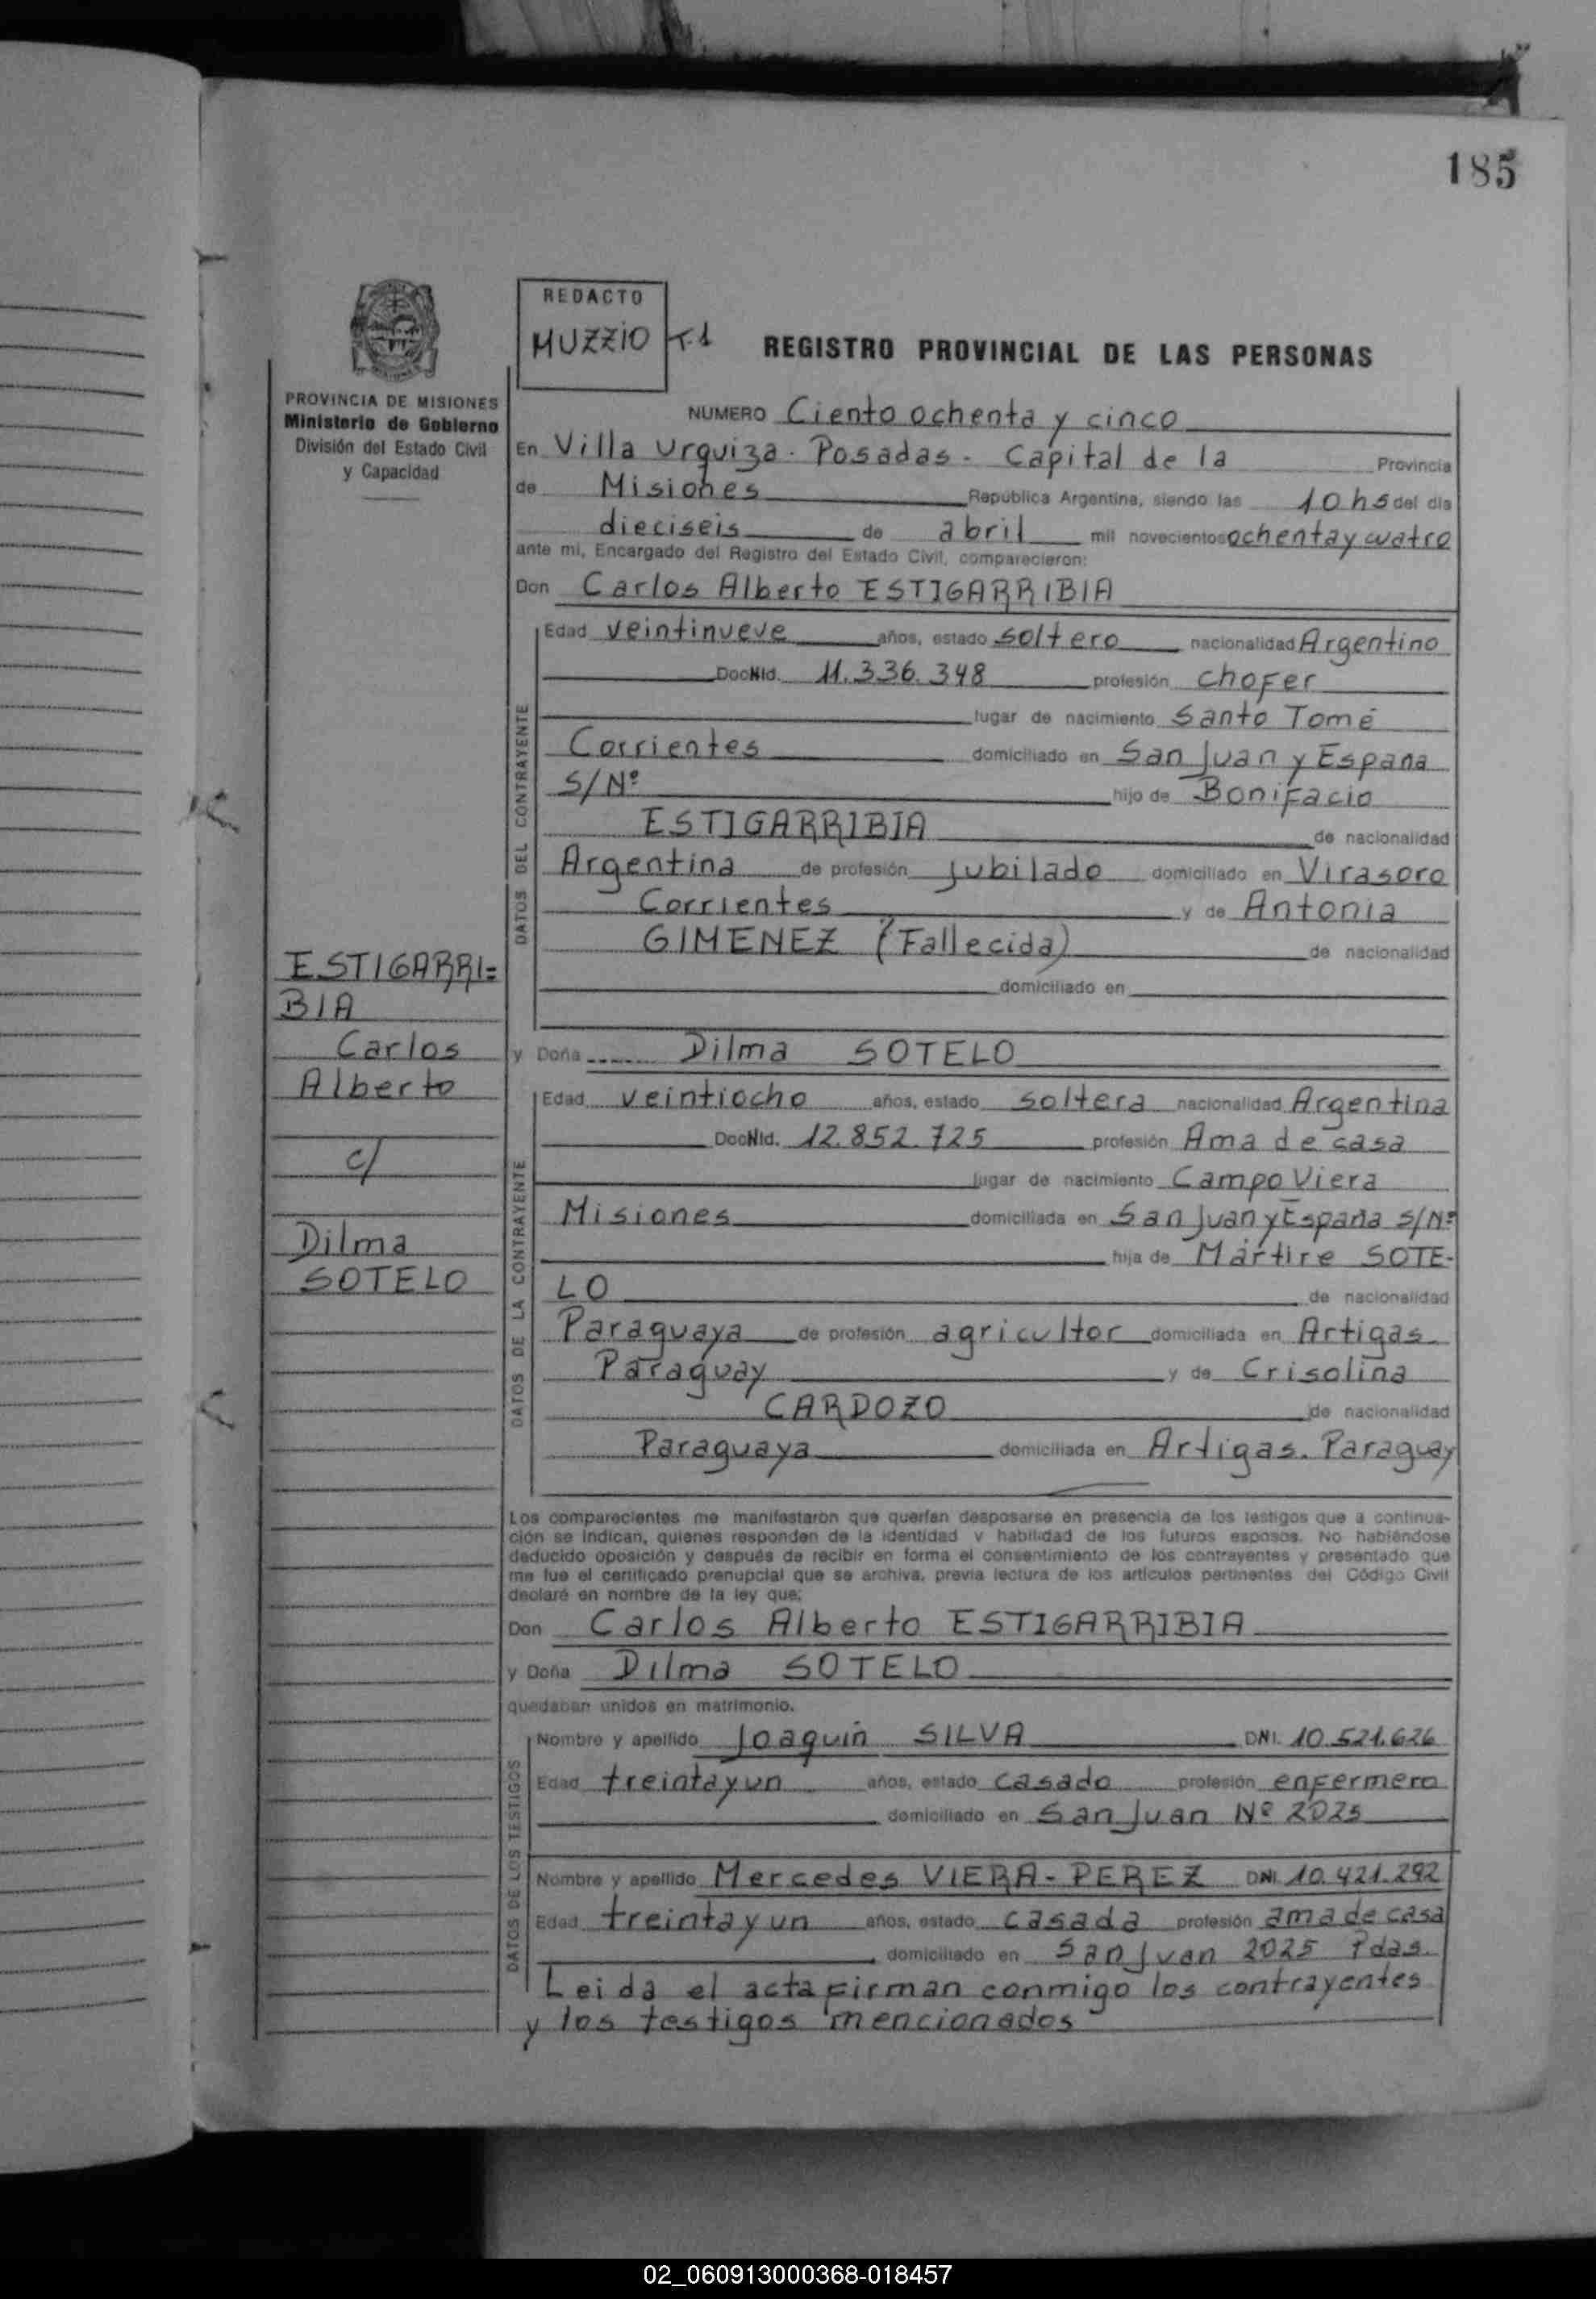 185
REDACTO
MUZZIO T.1
REGISTRO PROVINCIAL DE LAS PERSONAS
PROVINCIA DE MISIONES
Ministerio de Gobierno
División del Estado Civil
y Capacidad
NUMERO Ciento ochenta y cinco
En Villa Urquiza - Posadas - Capital de la Provincia
de Misiones República Argentina, siendo las 10 hs del día
dieciseis de abril mil novecientos ochenta y cuatro
ante mi, Encargado del Registro del Estado Civil, comparecieron:
Don Carlos Alberto ESTIGARRIBIA
DATOS DEL CONTRAYENTE
Edad veintinueve años, estado soltero nacionalidad Argentino
Doc NId. 11.336.348 profesión chofer
lugar de nacimiento Santo Tomé
Corrientes domiciliado en San Juan y España
S/Nº hijo de Bonifacio
ESTIGARRIBIA de nacionalidad
Argentina de profesión jubilado domiciliado en Virasoro
Corrientes y de Antonia
GIMENEZ (Fallecida) de nacionalidad
domiciliado en
ESTIGARRI=
BIA
Carlos
Alberto
c/
Dilma
SOTELO
y Doña Dilma SOTELO
DATOS DE LA CONTRAYENTE
Edad veintiocho años, estado soltera nacionalidad Argentina
Doc NId. 12.852.725 profesión Ama de casa
lugar de nacimiento Campo Viera
Misiones domiciliada en San Juan y España S/Nº
hija de Mártire SOTE-
LO de nacionalidad
Paraguaya de profesión agricultor domiciliada en Artigas
Paraguay y de Crisolina
CARDOZO de nacionalidad
Paraguaya domiciliada en Artigas. Paraguay
Los comparecientes me manifestaron que querían desposarse en presencia de los testigos que a continua-
ción se indican, quienes responden de la identidad y habilidad de los futuros esposos. No habiéndose
deducido oposición y después de recibir en forma el consentimiento de los contrayentes y presentado que
me fue el certificado prenupcial que se archiva, previa lectura de los artículos pertinentes del Código Civil
declaré en nombre de la ley que:
Don Carlos Alberto ESTIGARRIBIA
y Doña Dilma SOTELO
quedaban unidos en matrimonio.
DATOS DE LOS TESTIGOS
Nombre y apellido Joaquín SILVA DNI. 10.521.626
Edad treinta y un años, estado casado profesión enfermero
domiciliado en San Juan Nº 2025
Nombre y apellido Mercedes VIERA - PEREZ DNI. 10.421.292
Edad treinta y un años, estado casada profesión ama de casa
domiciliado en San Juan 2025 Pdas.
Leida el acta firman conmigo los contrayentes
y los testigos mencionados
02_060913000368-018457